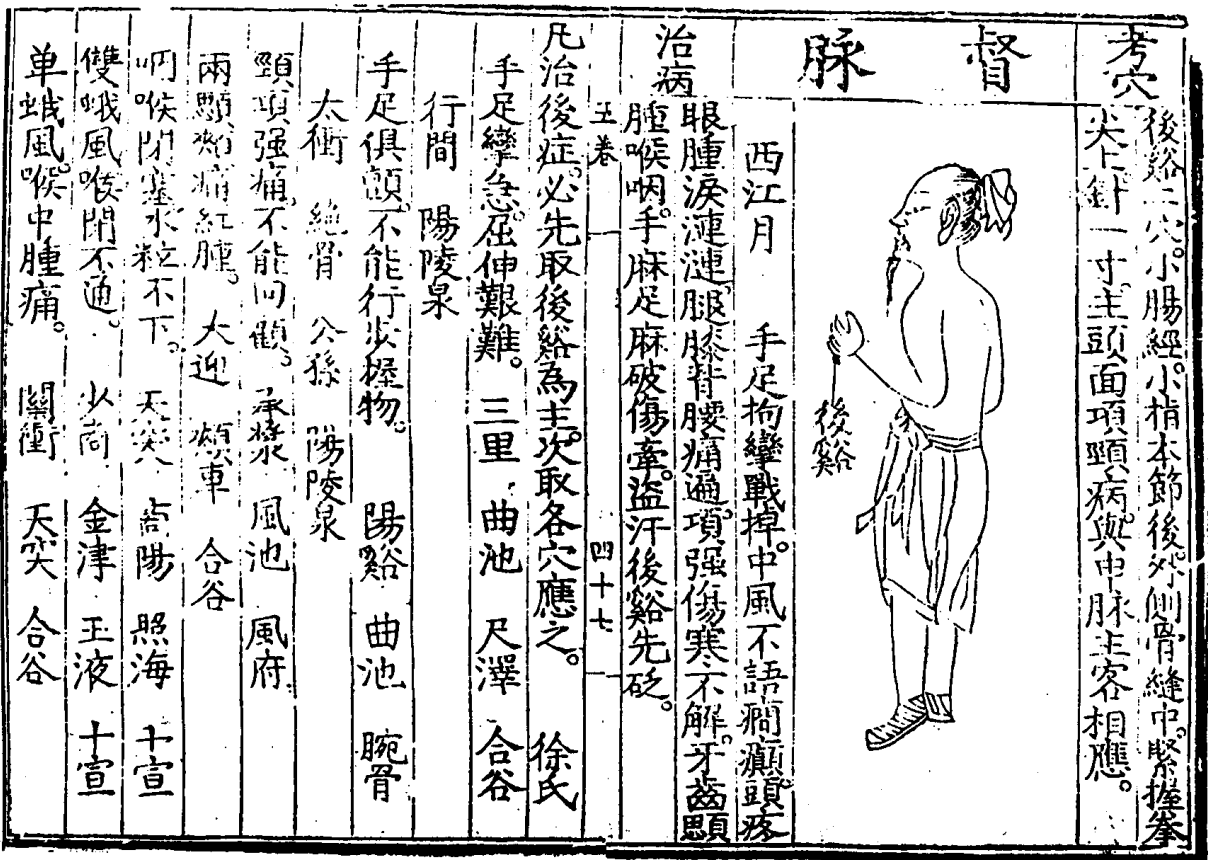 考穴
後谿二穴。小腸經。小指本節後。外側骨縫中。緊握拳
尖上針一寸。主頭面項頸病。與申脉主客相應。
督脉
後谿
西江月　手足拘攣戰掉。中風不語癇癲。頭疼
治病
眼腫淚漣漣。腿膝背腰痛遍。項强傷寒不解。牙齒顋
腫喉咽。手麻足麻破傷牽。盜汗後谿先砭。
五卷　四十七
凡治後症。必先取後谿為主。次取各穴應之。　徐氏
手足攣急。屈伸艱難。三里　曲池　尺澤　合谷
行間　陽陵泉
手足俱顫。不能行步握物。　陽谿　曲池　腕骨
太衝　絶骨　公孫　陽陵泉
頸項强痛。不能回顧。承漿　風池　風府
兩顋頰痛紅腫。　大迎　頰車　合谷
咽喉閉塞水粒不下。　天突　商陽　照海　十宣
雙蛾風。喉閉不通。　少商　金津　玉液　十宣
单蛾風。喉中腫痛。　關衝　天突　合谷